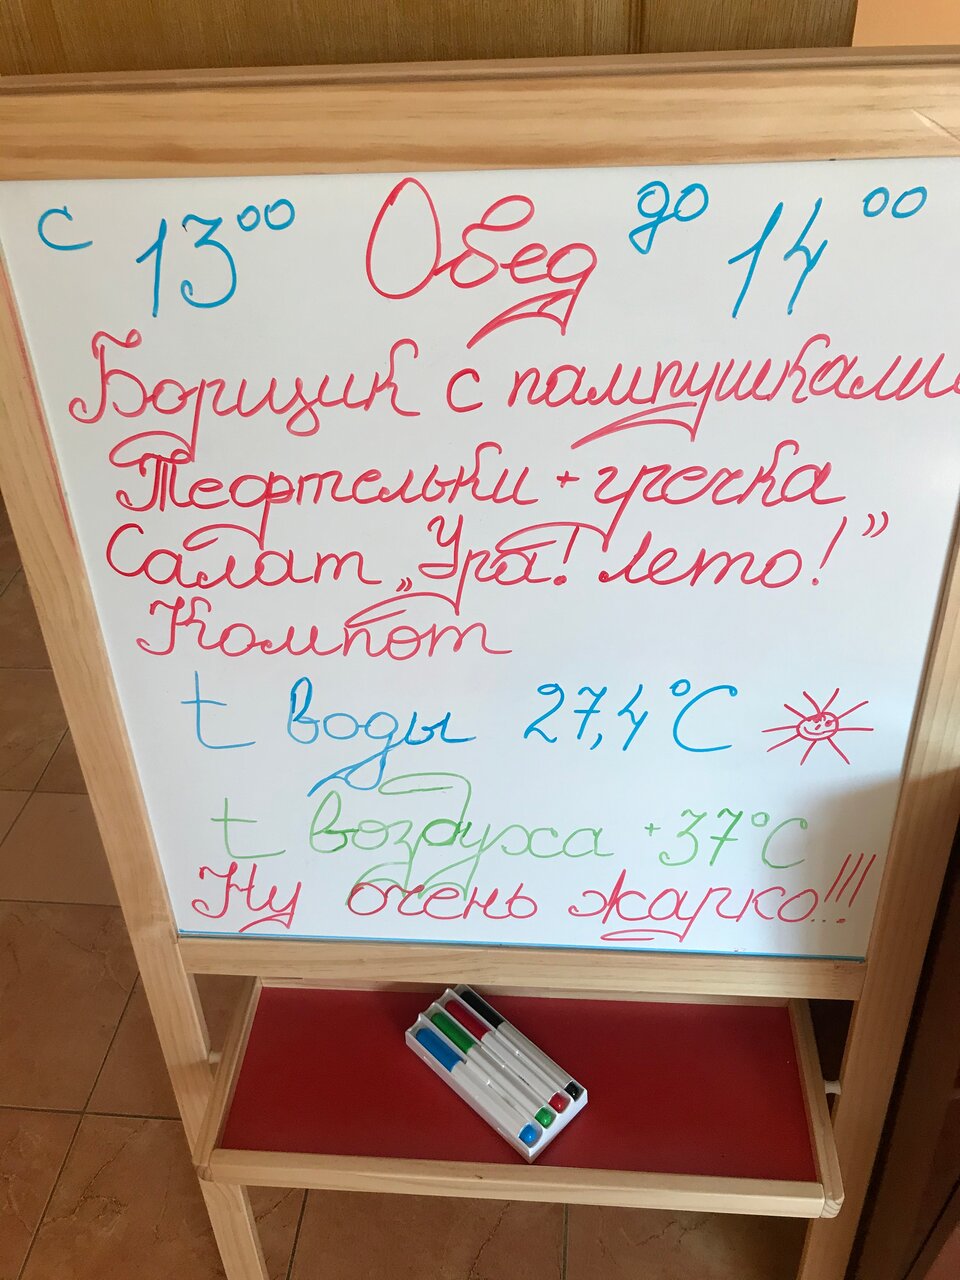 с 13⁰⁰ Обед до 14⁰⁰
Борщик с пампушками
Тефтельки + гречка
Салат „Ура! лето!”
Компот
t воды 27,4°C
t воздуха +37°C
Ну очень жарко...!!!